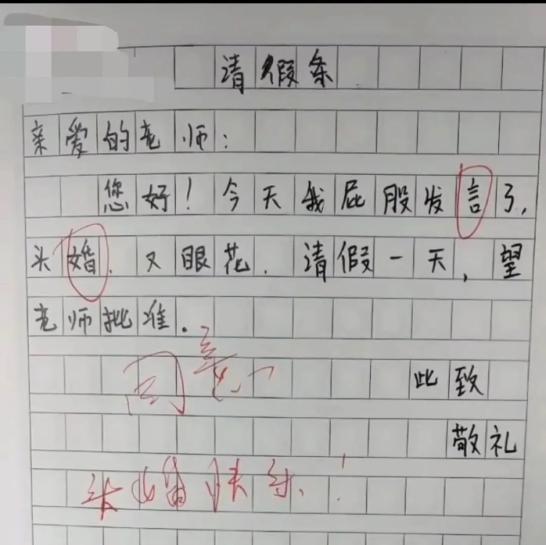 请假条
亲爱的老师:
您好!今天我屁股发言了,
头婚.又眼花.请假一天,望
老师批准.
同意!
此致
敬礼
头婚快乐!